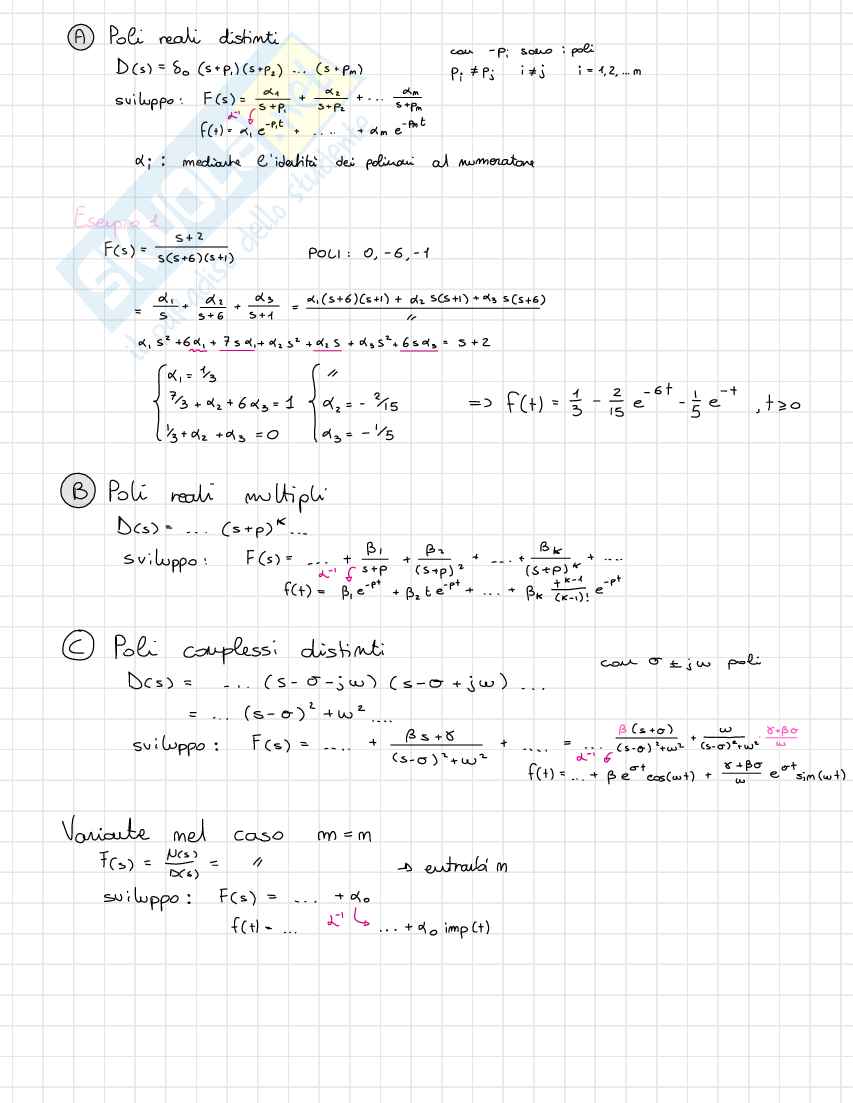 A Poli reali distinti
D(s) = δ₀ (s+p₁)(s+p₂) ... (s+pₙ)
con -pᵢ sono i poli
pᵢ ≠ pⱼ i≠j i = 1,2,...n
sviluppo: F(s) = α₁/(s+p₁) + α₂/(s+p₂) + ... αₙ/(s+pₙ)
ℒ⁻¹
f(t) = α₁ e^(-p₁t) + .... + αₙ e^(-pₙt)
αᵢ : mediante l'identità dei polinomi al numeratore
Esempio 1
F(s) = (s+2)/(s(s+6)(s+1)) POLI: 0, -6, -1
= α₁/s + α₂/(s+6) + α₃/(s+1) = (α₁(s+6)(s+1) + α₂ s(s+1) + α₃ s(s+6))/〃
α₁s² + 6α₁ + 7sα₁ + α₂s² + α₂s + α₃s² + 6sα₃ = s+2
{ α₁ = 1/3 { 〃
7/3 + α₂ + 6α₃ = 1 α₂ = - 2/15 => f(t) = 1/3 - 2/15 e^(-6t) - 1/5 e^(-t) , t≥0
1/3 + α₂ + α₃ = 0 α₃ = - 1/5
B Poli reali multipli
D(s) = ... (s+p)^k ...
sviluppo: F(s) = .... + β₁/(s+p) + β₂/(s+p)² + ... + βₖ/(s+p)^k + ....
ℒ⁻¹
f(t) = β₁e^(-pt) + β₂ t e^(-pt) + ... + βₖ t^(k-1)/(k-1)! e^(-pt)
C Poli complessi distinti
con σ ± jω poli
D(s) = ... (s-σ-jω) (s-σ+jω) ...
= ... (s-σ)² + ω² ....
sviluppo: F(s) = .... + (βs+γ)/((s-σ)²+ω²) + .... = ... β(s+σ)/((s-σ)²+ω²) + ω/((s-σ)²+ω²) · (γ+βσ)/ω
ℒ⁻¹
f(t) = ... + β e^(σt) cos(ωt) + (γ+βσ)/ω e^(σt) sin(ωt)
Variante nel caso m = n
F(s) = N(s)/D(s) = 〃 → entrambi n
sviluppo: F(s) = ... + α₀
ℒ⁻¹
f(t) = ... ... + α₀ imp(t)
SKUOLA.net
il paradiso dello studente